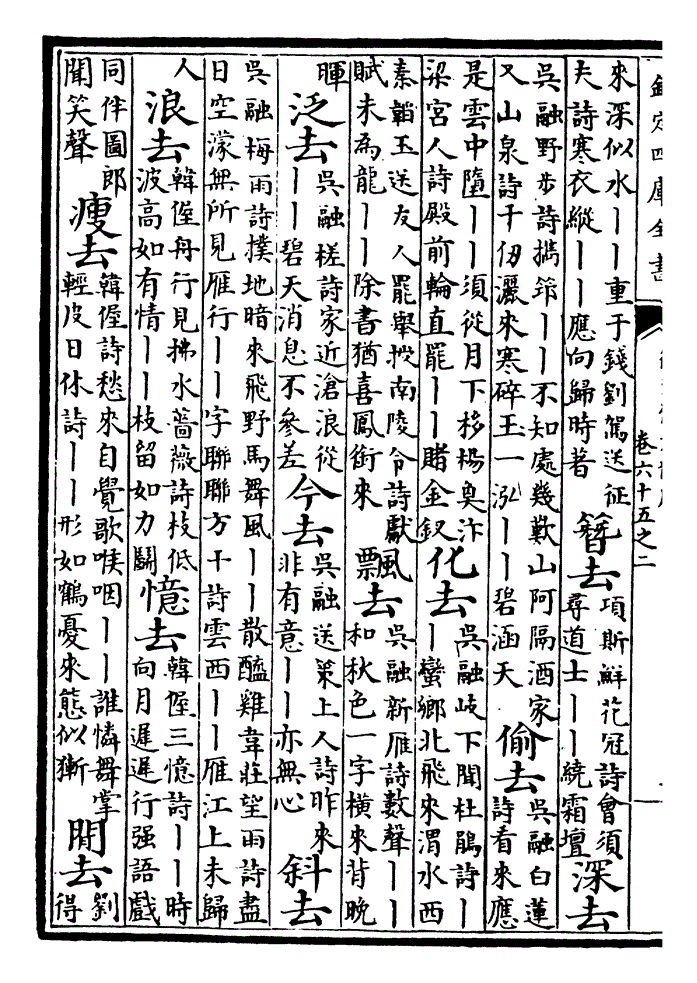 欽定四庫全書
卷六十五之二
來深似水丨丨重于錢劉駕送征
夫詩寒衣縱丨丨應向歸時著
簪去
項斯鮮花冠詩會須
尋道士丨丨繞霜壇
深去
吳融野步詩攜筇丨丨不知處幾歎山阿隔酒家
又山泉詩千仞灑來寒碎玉一泓丨丨碧涵天
偷去
吳融白蓮
詩看來應
是雲中墮丨丨須從月下移楊奐汴
梁宮人詩殿前輪直罷丨丨賭金釵
化去
吳融岐下聞杜鵑詩丨
丨蠻鄉北飛來渭水西
秦韜玉送友人罷舉授南陵令詩獻
賦未為龍丨丨除書猶喜鳳銜來
飄去
吳融新雁詩數聲丨丨
和秋色一字橫來背晚
暉
泛去
吳融槎詩家近滄浪從
丨丨碧天消息不參差
今去
吳融送策上人詩昨來
非有意丨丨亦無心
斜去
吳融梅雨詩撲地暗來飛野馬舞風丨丨散醯雞韋莊望雨詩盡
日空濛無所見雁行丨丨字聯聯方干詩雲西丨丨雁江上未歸
人
浪去
韓偓舟行見拂水薔薇詩枝低
波高如有情丨丨枝留如力鬭
憶去
韓偓三憶詩丨丨時
向月遲遲行强語戲
同伴圖郎
聞笑聲
瘦去
韓偓詩愁來自覺歌喉咽丨丨誰憐舞掌
輕皮日休詩丨丨形如鶴憂來態似獑
閒去
劉
得